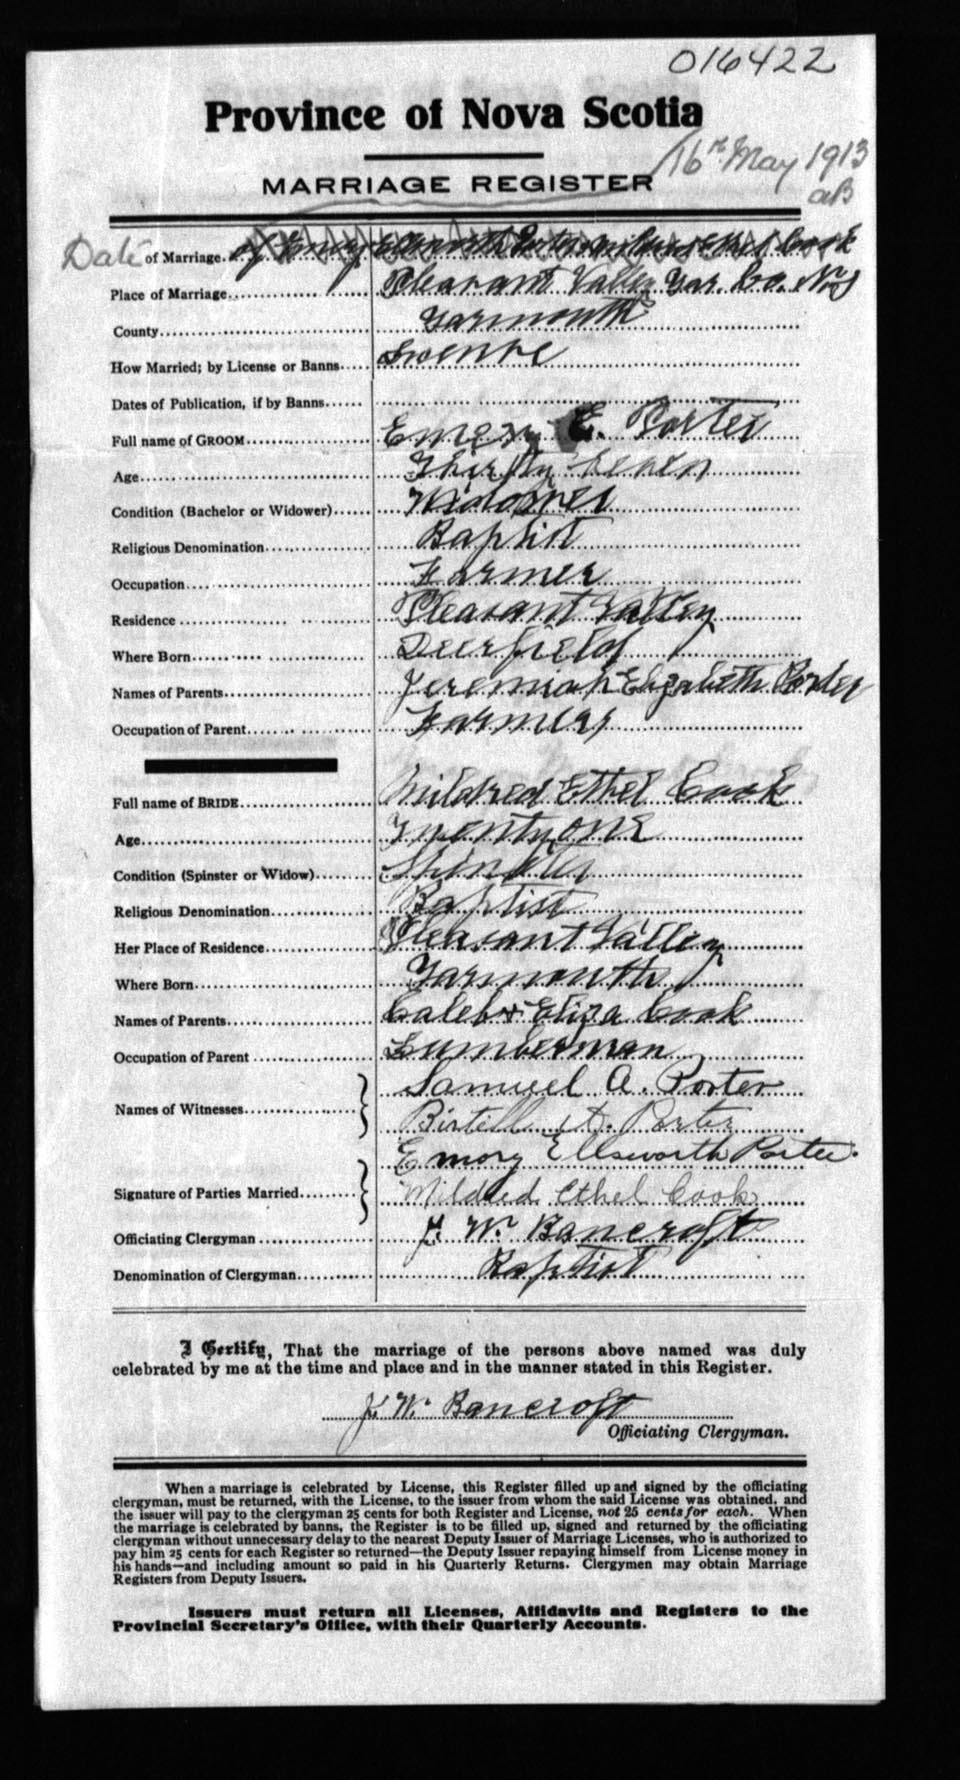 016422
Province of Nova Scotia
16th May 1913
MARRIAGE REGISTER
aB
Date of Marriage. of Emory Ellsworth Porter Mildred Ethel Cook
Place of Marriage Pleasant Valley Yar. Co. N.S
County Yarmouth
How Married; by License or Banns
Dates of Publication, if by Banns
Full name of GROOM Emery E. Porter
Age Thirty Seven
Condition (Bachelor or Widower) Widower
Religious Denomination Baptist
Occupation Farmer
Residence Pleasant Valley
Where Born Deerfield
Names of Parents Jeremiah Elizabeth Porter
Occupation of Parent Farmers
Full name of BRIDE Mildred Ethel Cook
Age Twenty one
Condition (Spinster or Widow)
Religious Denomination Baptist
Her Place of Residence Pleasant Valley
Where Born Yarmouth
Names of Parents Caleb & Eliza Cook
Occupation of Parent Lumberman
Samuel A. Porter
Names of Witnesses
Birtell A. Porter
Emory Ellsworth Porter.
Signature of Parties Married Mildred Ethel Cook
Officiating Clergyman J. W. Bancroft
Denomination of Clergyman Baptist
I Certify, That the marriage of the persons above named was duly
celebrated by me at the time and place and in the manner stated in this Register.
J. W. Bancroft
Officiating Clergyman.
When a marriage is celebrated by License, this Register filled up and signed by the officiating
clergyman, must be returned, with the License, to the issuer from whom the said License was obtained, and
the issuer will pay to the clergyman 25 cents for both Register and License, not 25 cents for each. When
the marriage is celebrated by banns, the Register is to be filled up, signed and returned by the officiating
clergyman without unnecessary delay to the nearest Deputy Issuer of Marriage Licenses, who is authorized to
pay him 25 cents for each Register so returned—the Deputy Issuer repaying himself from License money in
his hands—and including amount so paid in his Quarterly Returns. Clergymen may obtain Marriage
Registers from Deputy Issuers.
Issuers must return all Licenses, Affidavits and Registers to the
Provincial Secretary's Office, with their Quarterly Accounts.